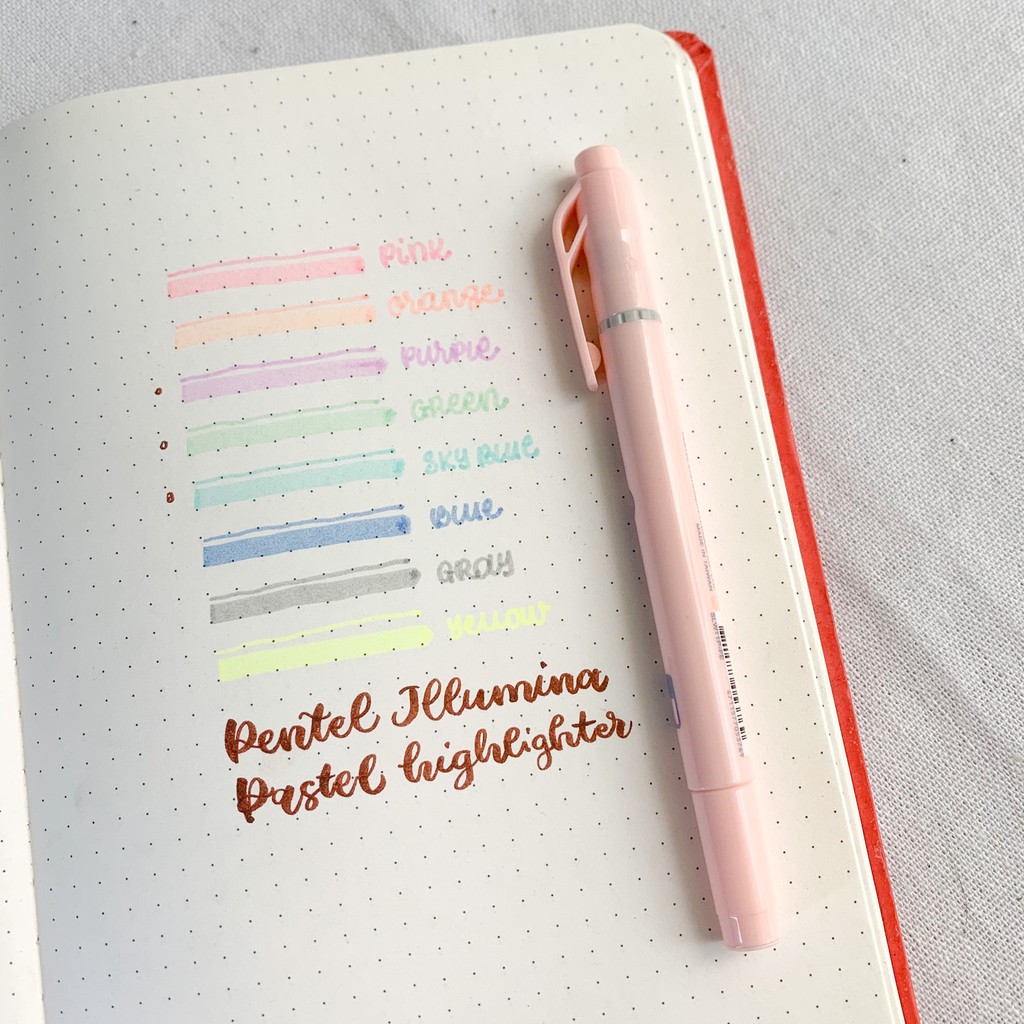 Pink
Orange
Purple
Green
Sky Blue
Blue
Gray
Yellow
Pentel Illumina
Pastel highlighter
MADE IN TAIWAN